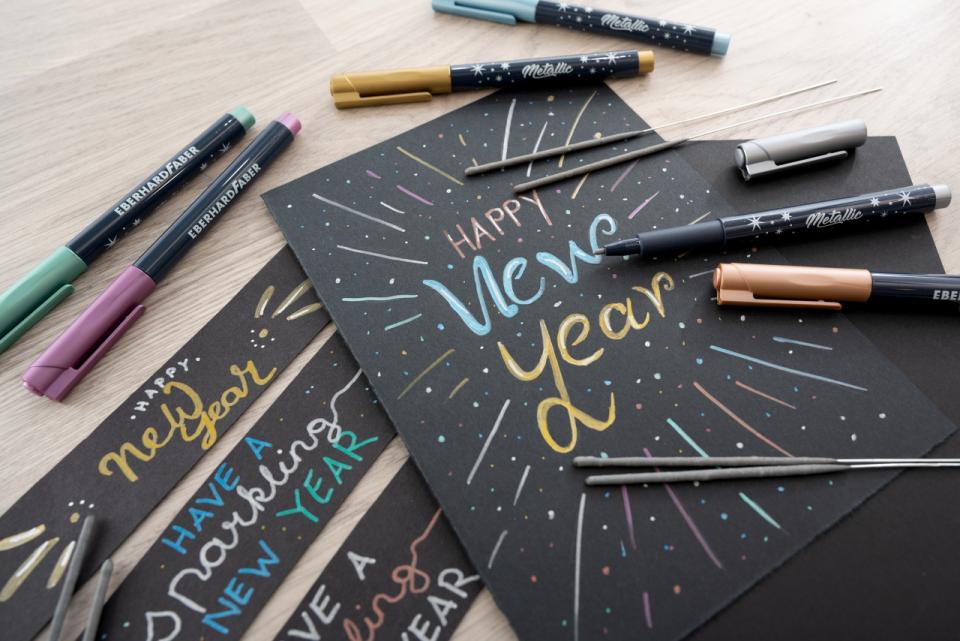 Metallic
Metallic
EBERHARD FABER
EBERHARD FABER
HAPPY
New
Year
Metallic
EBE
HAPPY
New
Year
HAVE A
sparkling
NEW YEAR
VE A
ling
YEAR